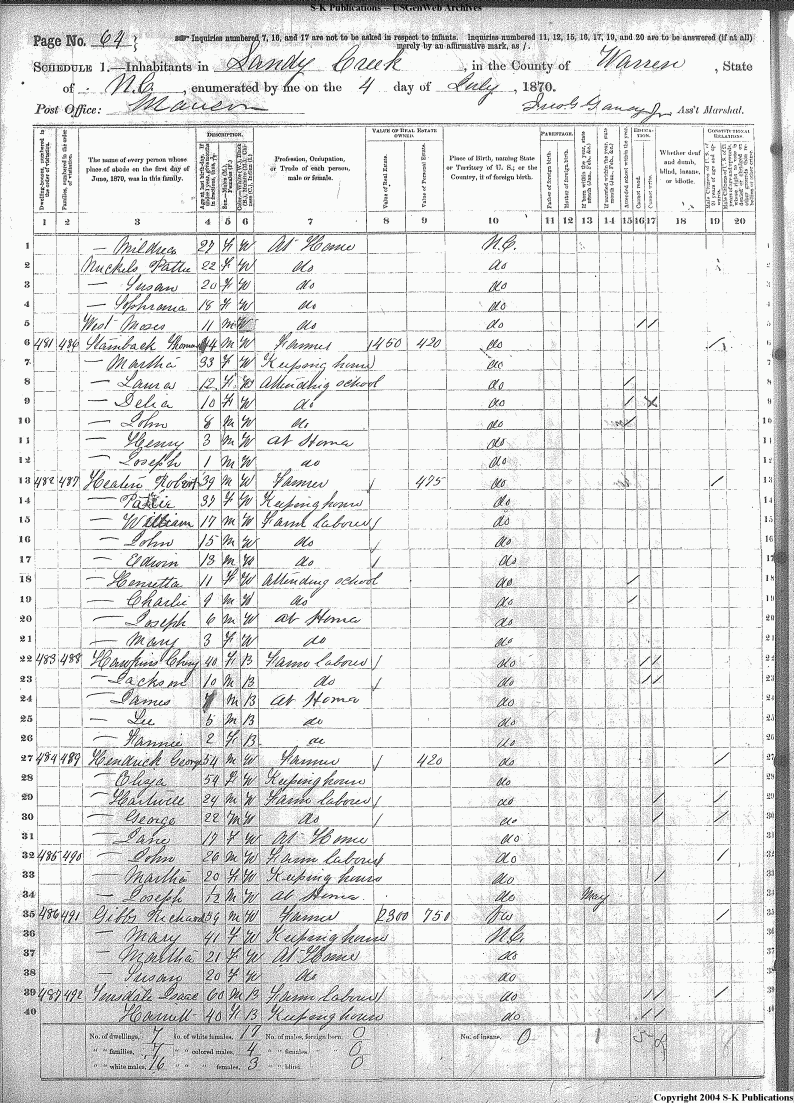 S-K Publications – USGenWeb Archives
Page No. 64
Inquiries numbered 7, 16, and 17 are not to be asked in respect to infants. Inquiries numbered 11, 12, 15, 16, 17, 19, and 20 are to be answered (if at all)
merely by an affirmative mark, as /.
Schedule 1.—Inhabitants in Sandy Creek, in the County of Warren, State
of N.C., enumerated by me on the 4 day of July, 1870.
Post Office: Ass't Marshal.
Dwelling-houses, numbered in the order of visitation. Families, numbered in the order of visitation. The name of every person whose place of abode on the first day of June, 1870, was in this family. Description. Profession, Occupation, or Trade of each person, male or female. Value of Real Estate owned. Value of Real Estate. Value of Personal Estate. Place of Birth, naming State or Territory of U. S.; or the Country, if of foreign birth. Parentage. Father of foreign birth. Mother of foreign birth. Education. Cannot read. Cannot write. Whether deaf and dumb, blind, insane, or idiotic. Constitutional Relations.
1 2 3 4 5 6 7 8 9 10 11 12 13 14 15 16 17 18 19 20
1 — Mildred 27 F W At Home N.C. 1
2 22 F W do do 2
3 — Susan 20 F W do do 3
4 — Sophrania 18 F W do do 4
5 West Moses 11 M W do do / / 5
6 481 486 Stainback Thomas 44 M W Farmer 1450 420 do / 6
7 — Martha 33 F W Keeping house do 7
8 — Laura 12 F W Attending school do / 8
9 — Delia 10 F W do do / 9
10 — John 8 M W do do / 10
11 — Henry 3 M W At Home do 11
12 — Joseph 1 M W do do 12
13 482 487 Robert 39 M W Farmer 475 do / 13
14 — Pattie 37 F W Keeping house do 14
15 — William 17 M W Farm laborer do 15
16 — John 15 M W do do 16
17 — Edwin 13 M W do do 17
18 — Henrietta 11 F W Attending school do / 18
19 — Charlie 9 M W do do / 19
20 — Joseph 6 M W At Home do 20
21 — Mary 3 F W do do 21
22 483 488 Hawkins 40 F B Farm laborer do / / 22
23 — Jackson 10 M B do do / / 23
24 — James 7 M B At Home do 24
25 — Lee 5 M B do do 25
26 — Fannie 2 F B do do 26
27 484 489 Hendrick George 54 M W Farmer 420 do / 27
28 — Eliza 54 F W Keeping house do 28
29 — Hartwell 24 M W Farm laborer do / / 29
30 — George 22 M W do do / / 30
31 — Jane 17 F W At Home do 31
32 485 490 — John 26 M W Farm laborer do / 32
33 — Martha 20 F W Keeping house do / 33
34 — Joseph 1/12 M W At Home do May 34
35 486 491 Gibbs Richard 59 M W Farmer 2300 750 / 35
36 — Mary 41 F W Keeping house N.C. 36
37 — Martha 21 F W At Home do 37
38 — Susan 20 F W do do 38
39 487 492 Isaac 60 M B Farm laborer do / / / 39
40 — Harrett 40 F B Keeping house do / / 40
No. of dwellings, 7 No. of white females, 17 No. of males, foreign born, 0 No. of insane, 0
" " families, 7 " " colored males, 4 " " females, " " 0
" " white males, 16 " " " females, 3 " " blind, 0
Copyright 2004 S-K Publications